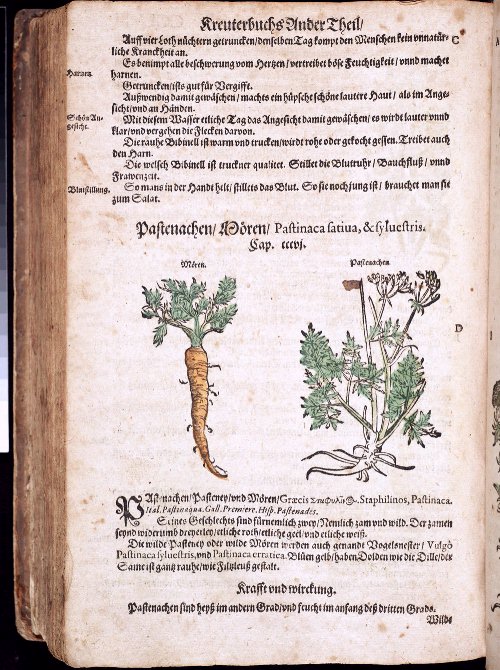 Kreuterbuchs Ander Theil/
Auff vier Loth nüchtern getruncken/denselben Tag kompt den Menschen kein vnnatür-
liche Kranckheit an.
C
Es benimpt alle beschwerung vom Hertzen/vertreibet böse Feuchtigkeit/vnnd machet
Harnen.
harnen.
Getruncken/ists gut für Vergifft.
Außwendig damit gewäschen/machts ein hüpsche schöne lautere Haut/als im Ange-
sicht/vnd an Händen.
Schön An-
gesicht.
Mit diesem Wasser etliche Tag das Angesicht damit gewäschen/es wirdt lauter vnnd
klar/vnd vergehen die Flecken darvon.
Die rauhe Bibinell ist warm vnd trucken/wirdt rohe oder gekocht gessen. Treibet auch
den Harn.
Die welsch Bibinell ist truckner qualitet. Stillet die Blutruhr/Bauchfluß/vnnd
Frawenzeit.
Blutstillung.
So mans in der Handt helt/stillets das Blut. So sie noch jung ist/brauchet man sie
zum Salat.
Pastenachen/Mören/Pastinaca satiua, & syluestris.
Cap. cccvj.
Mören.
Pastenachen
D
PAstenachen/Pasteney/vnd Mören/Græcis Σταφυλῖνος. Staphilinos, Pastinaca.
Ital. Pastinaqua. Gall. Premiere. Hisp. Pastenades.
Seines Geschlechts sind fürnemlich zwey/Nemlich zam vnd wild. Der zamen
seynd widerumb dreyerley/etliche roth/etliche geel/vnd etliche weiß.
Die wilde Pasteney oder wilde Mören werden auch genandt Vogelsnester/Vulgò
Pastinaca syluestris, vnd Pastinaca erratica. Blüen gelb/haben Dolden wie die Dille/der
Same ist gantz rauhe/wie Filtzleuß gestalt.
Krafft vnd wirckung.
Pastenachen sind heyß im andern Grad/vnd feucht im anfang deß dritten Grads.
Wilde